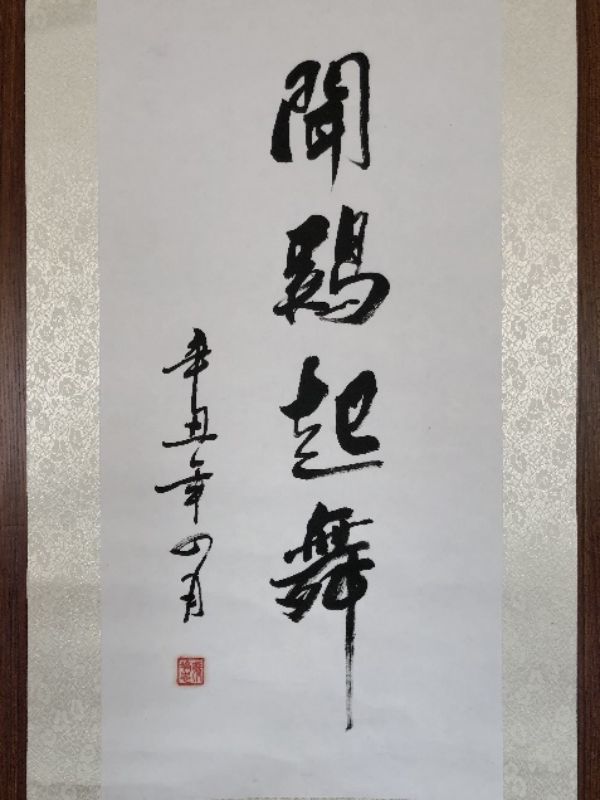 聞鷄起舞
辛丑年四月